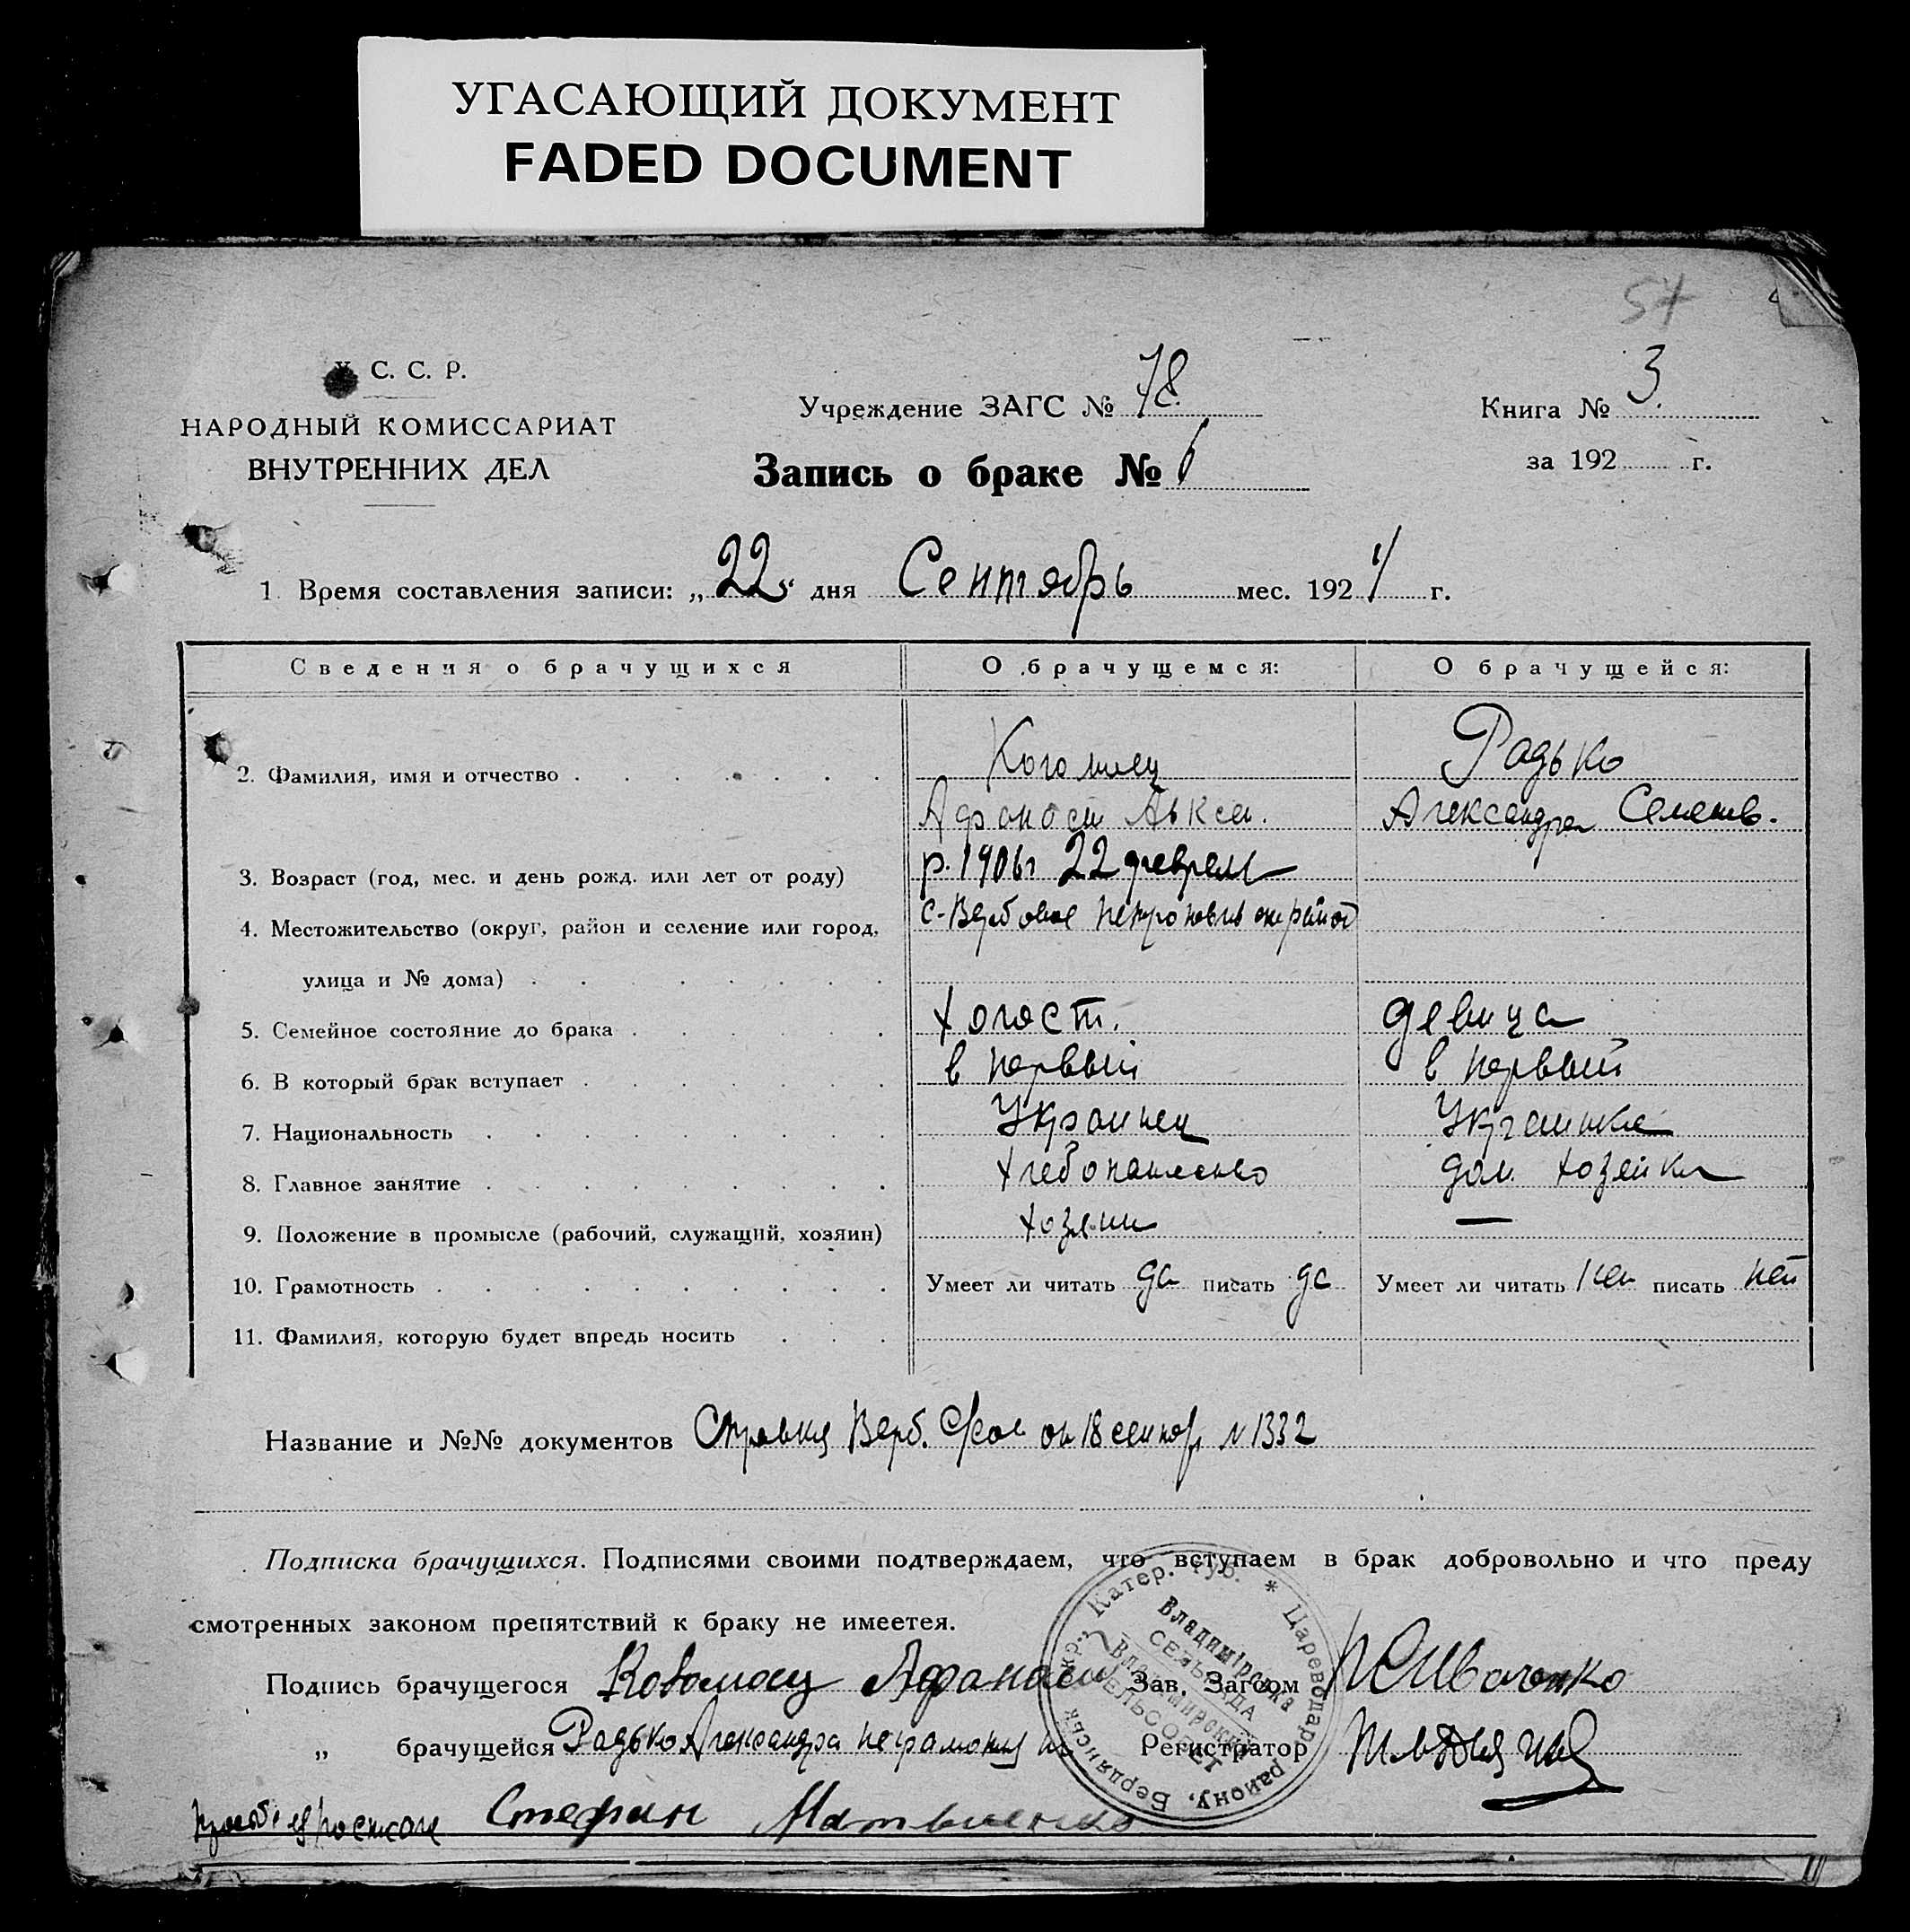 УГАСАЮЩИЙ ДОКУМЕНТ
FADED DOCUMENT
54
У. С. С. Р.
НАРОДНЫЙ КОМИССАРИАТ
ВНУТРЕННИХ ДЕЛ
Учреждение ЗАГС № 78
Книга № 3.
Запись о браке № 6
за 192 г.
1. Время составления записи: „22“ дня Сентябрь мес. 1924 г.
Сведения о брачущихся О брачущемся: О брачущейся:
2. Фамилия, имя и отчество Коломиец Радько
Афанасий Авксен. Александра Семенов.
3. Возраст (год, мес. и день рожд. или лет от роду) р. 1906 г 22 февраля
4. Местожительство (округ, район и селение или город, с-Вербовое
улица и № дома)
5. Семейное состояние до брака холост. девица
6. В который брак вступает в первый в первый
7. Национальность Украинец Украинка
8. Главное занятие хлебопашество дом. хозяйка
9. Положение в промысле (рабочий, служащий, хозяин) хозяин —
10. Грамотность Умеет ли читать да писать да Умеет ли читать нет писать нет
11. Фамилия, которую будет впредь носить
Название и №№ документов Справка Верб. от 18 сентяб N 1332
Подписка брачущихся. Подписями своими подтверждаем, что вступаем в брак добровольно и что преду
смотренных законом препятствий к браку не имеетея.
Подпись брачущегося Коваломоец Афанасий Зав. Загсом
„ брачущейся Радько Александра неграмотная Регистратор
Стефан Матвиенко
Бердянськ. окр., Катер. губ. * Цареводар. району,
Владимірська
СЕЛЬРАДА
Владимирский
СЕЛЬСОВЕТ